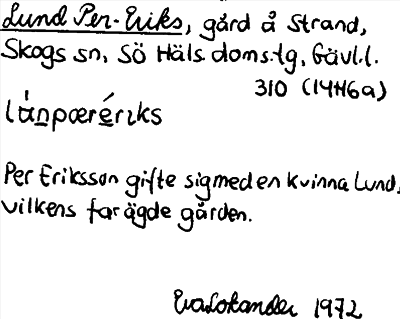 Lund Per-Eriks, gård å Strand,
Skogs sn, Sö Häls. doms.tg, Gävl.l.
310 (14H6a)
lȧṉpærériks
Per Eriksson gifte sig med en kvinna Lund,
vilkens far ägde gården.
Eva Lokander 1972